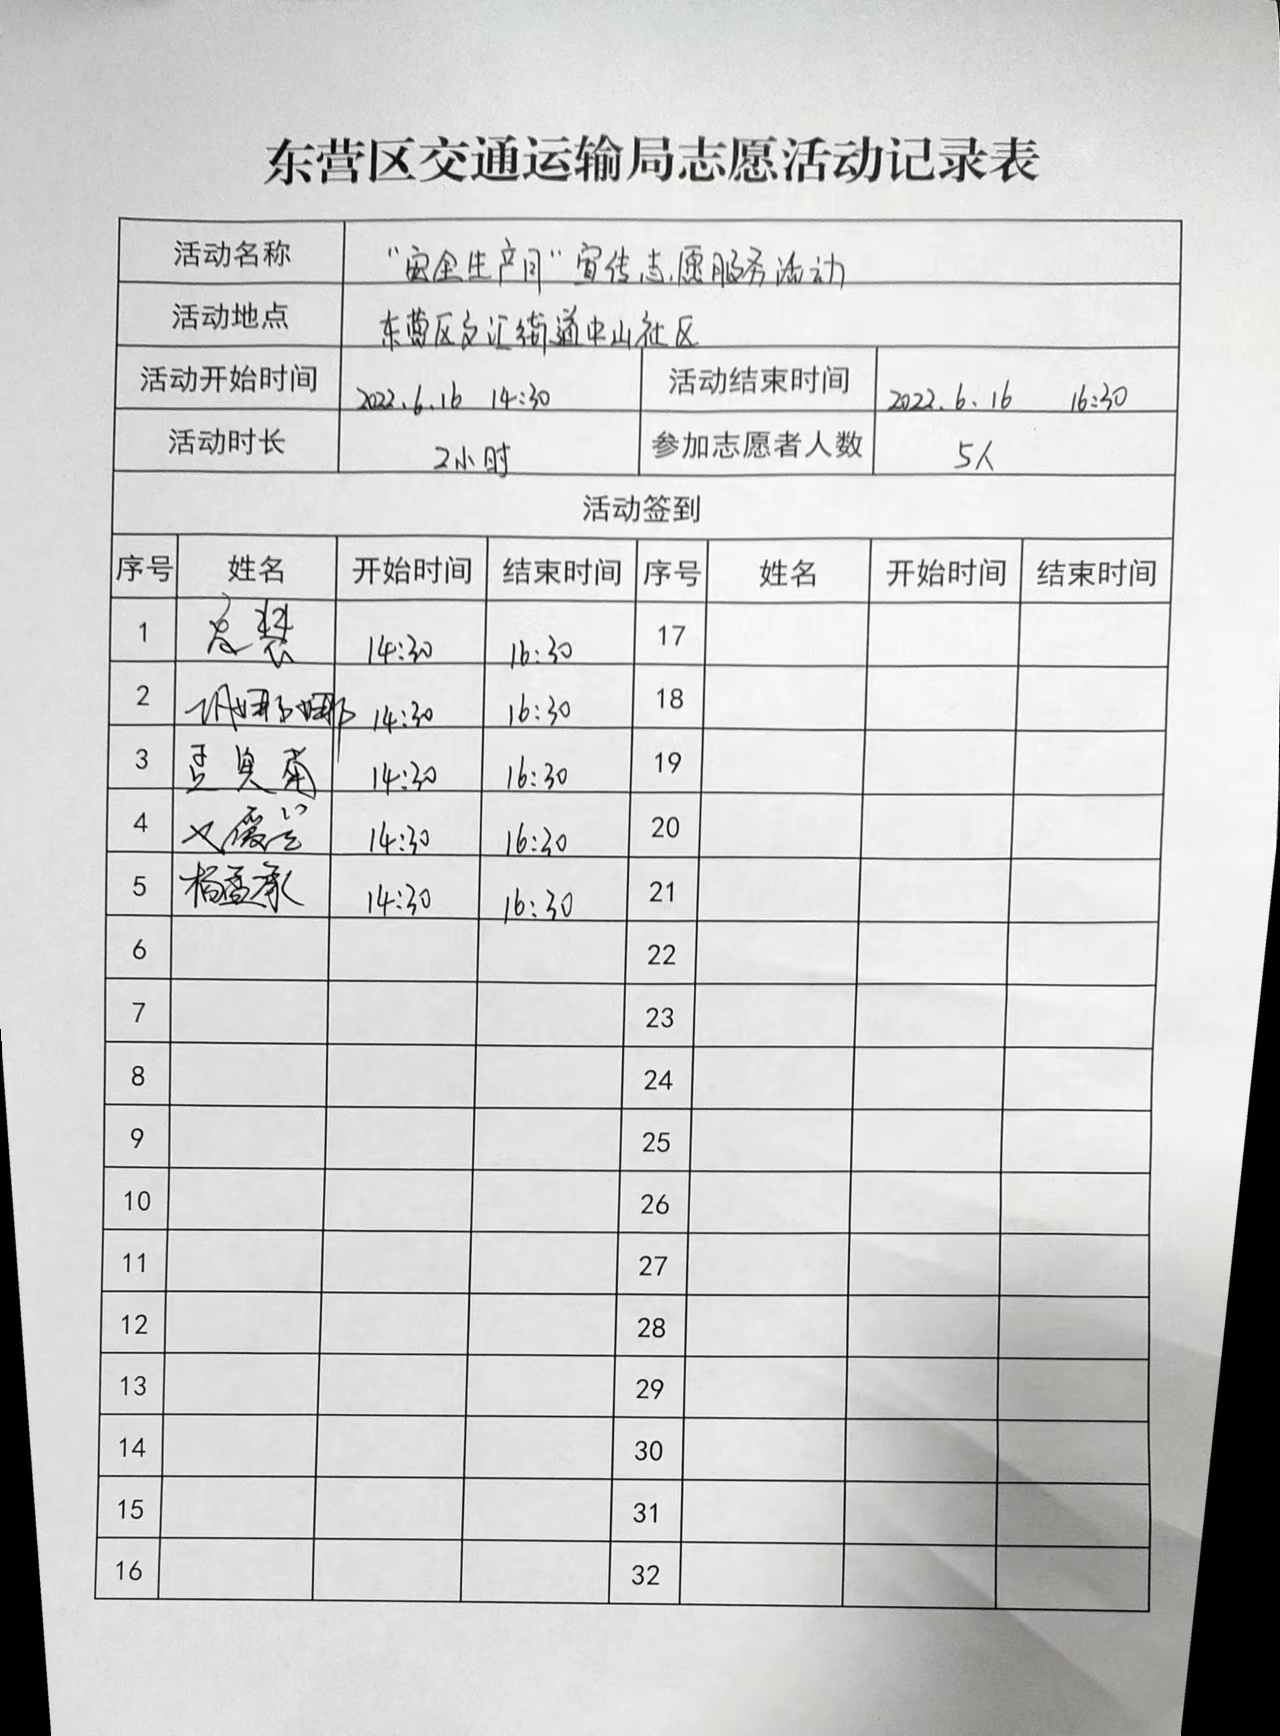 东营区交通运输局志愿活动记录表
活动名称 "安全生产月"宣传志愿服务活动
活动地点 东营区文汇街道中山社区
活动开始时间 2022.6.16 14:30 活动结束时间 2022.6.16 16:30
活动时长 2小时 参加志愿者人数 5人
活动签到
序号 姓名 开始时间 结束时间 序号 姓名 开始时间 结束时间
1 14:30 16:30 17
2 14:30 16:30 18
3 14:30 16:30 19
4 14:30 16:30 20
5 14:30 16:30 21
6 22
7 23
8 24
9 25
10 26
11 27
12 28
13 29
14 30
15 31
16 32